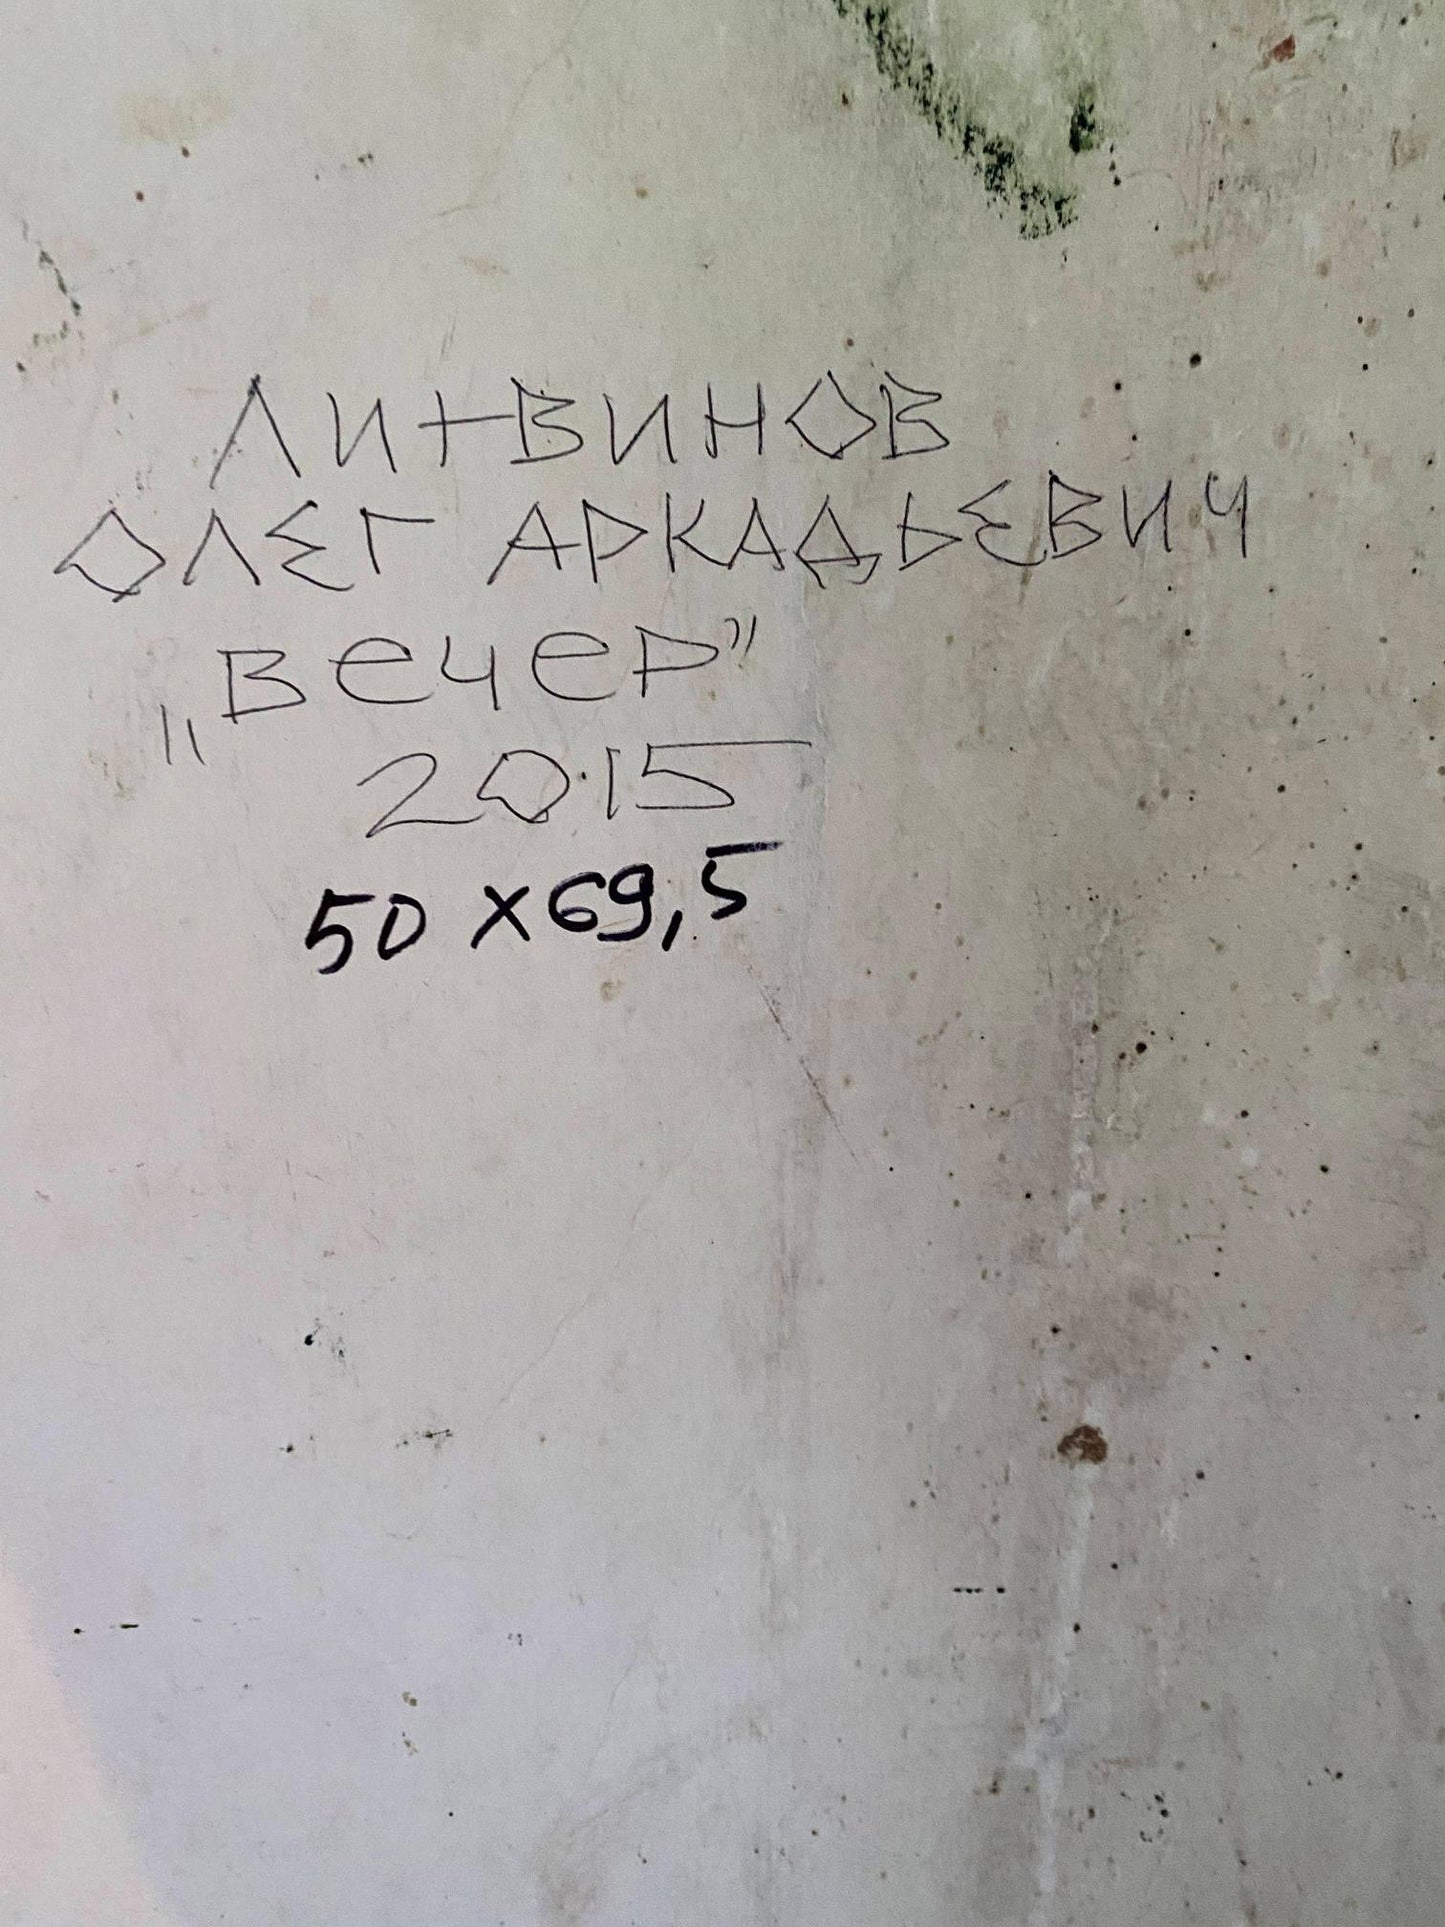 ЛИТВИНОВ
ОЛЕГ АРКАДЬЕВИЧ
„Вечер”
2015
50 x 69,5